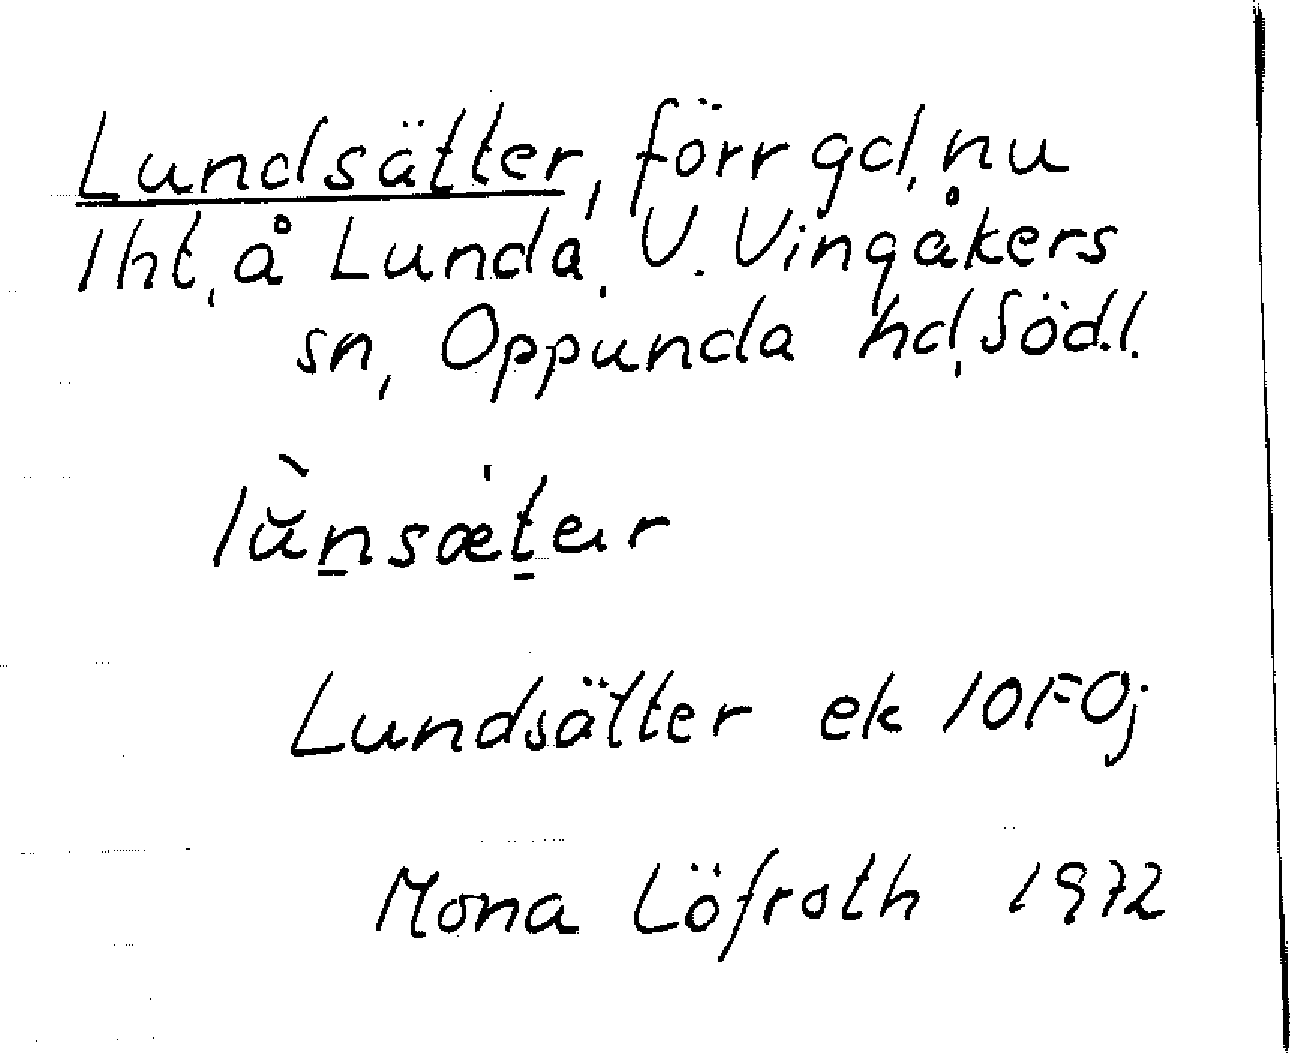 Lundsätter, förr gd, nu
lht, å Lunda, V. Vingåkers
sn, Oppunda hd, Söd.l.
Lundsätter ek 10F0j
Mona Löfroth 1972